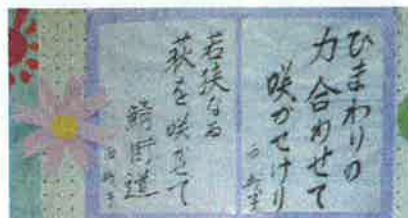 ひまわりの
力合わせて
咲かせけり
若狭なる
萩を咲かせて
鯖街道